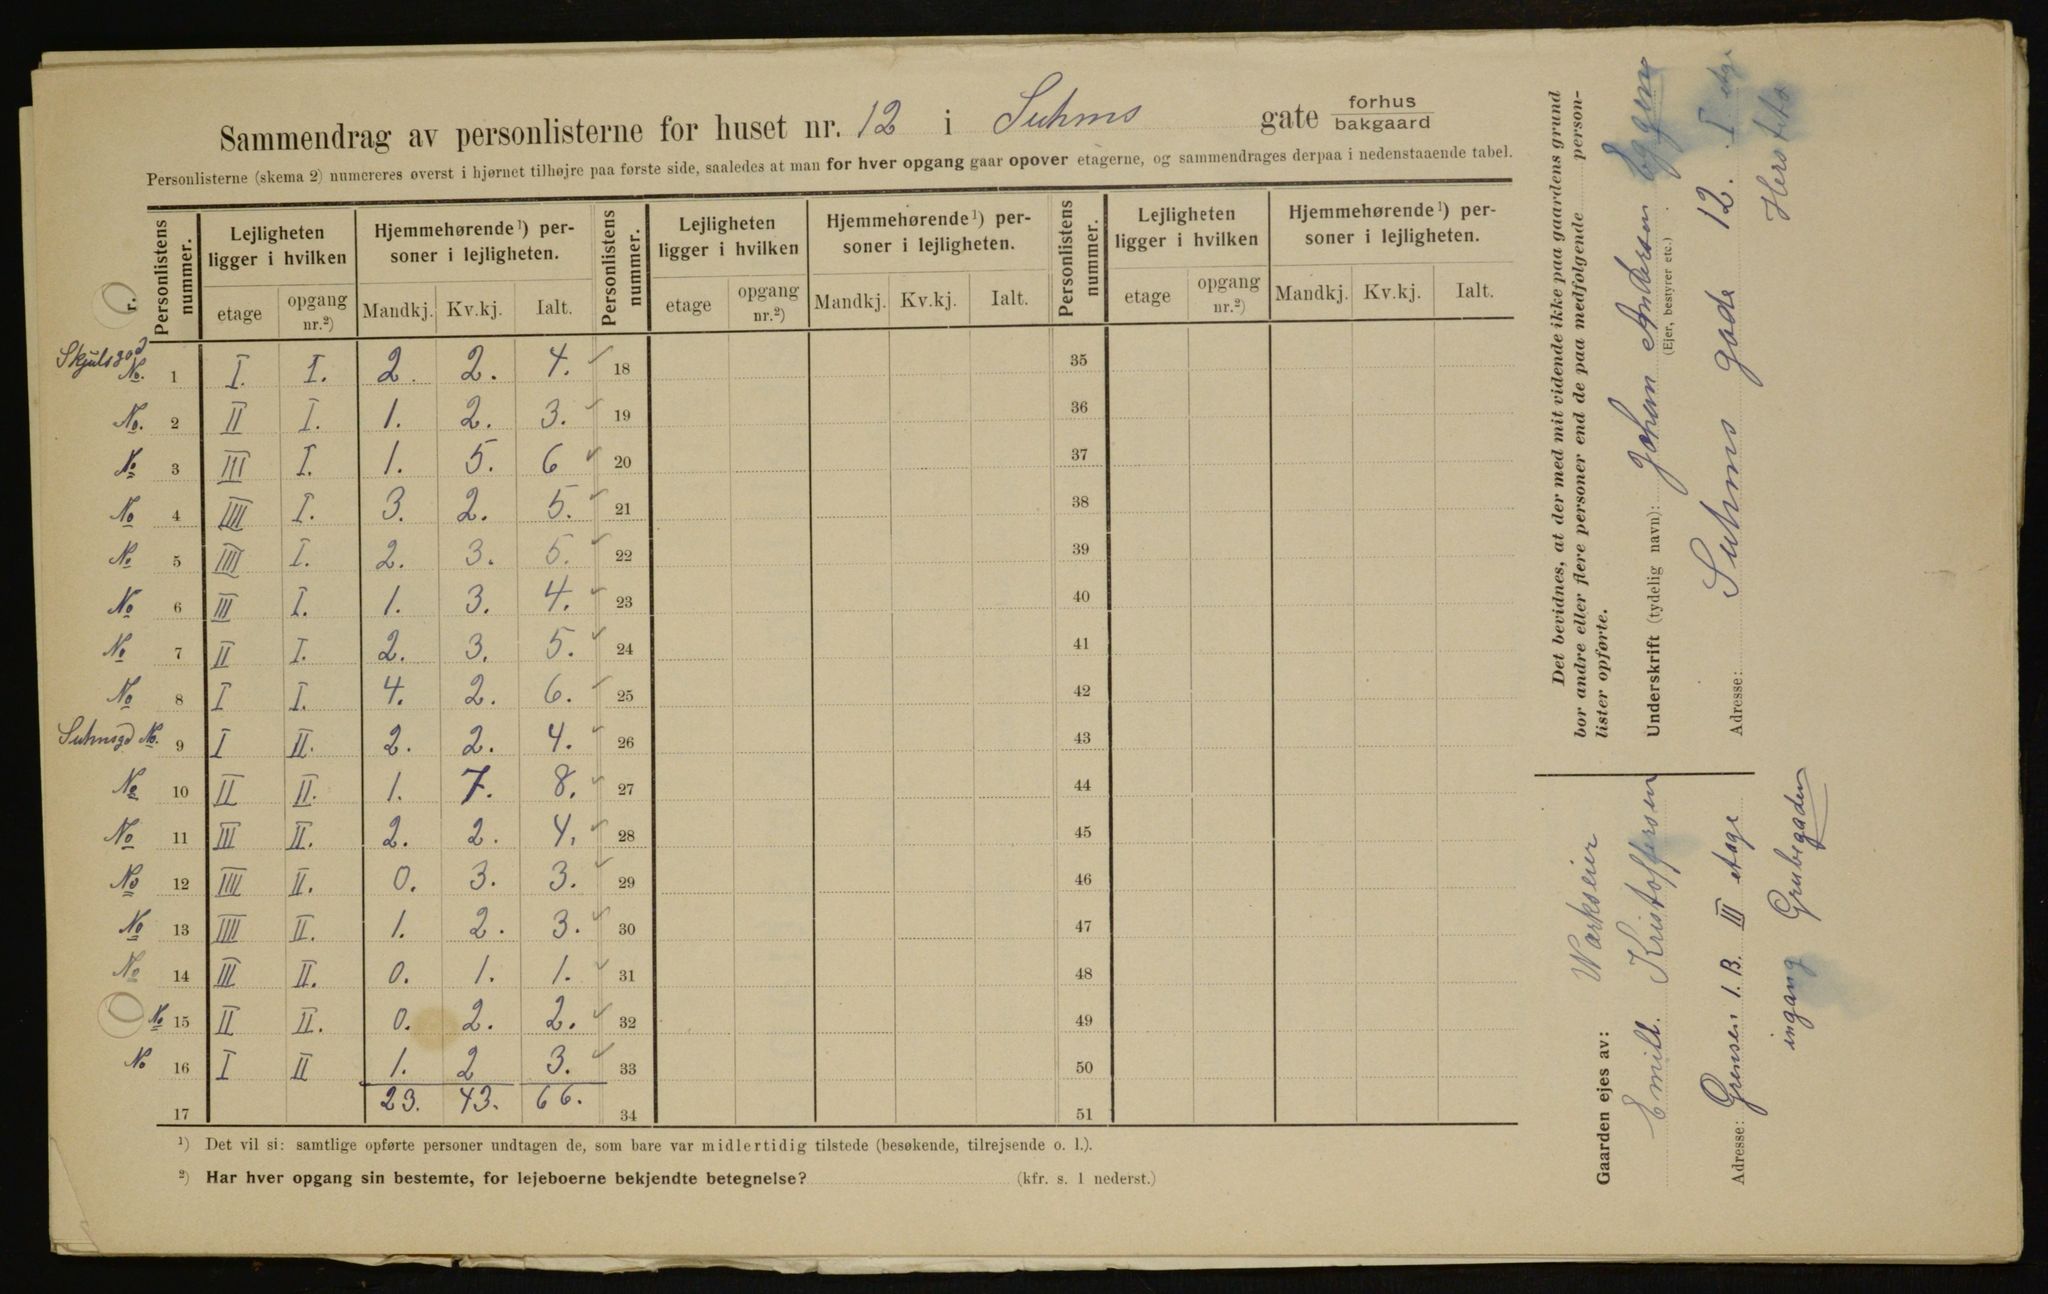 Sammendrag av personlisterne for huset nr. 12 i Suhms gate forhus
bakgaard
Personlisterne (skema 2) numereres øverst i hjørnet tilhøjre paa første side, saaledes at man for hver opgang gaar opover etagerne, og sammendrages derpaa i nedenstaaende tabel.
Personlistens nummer. Lejligheten ligger i hvilken Hjemmehørende ¹) personer i lejligheten. Personlistens nummer. Lejligheten ligger i hvilken Hjemmehørende ¹) personer i lejligheten. Personlistens nummer. Lejligheten ligger i hvilken Hjemmehørende ¹) personer i lejligheten.
etage opgang nr.²) Mandkj. Kv.kj. Ialt. etage opgang nr.²) Mandkj. Kv.kj. Ialt. etage opgang nr.²) Mandkj. Kv.kj. Ialt.
No. 1 I. I. 2. 2. 4. ✓ 18 35
No. 2 II I. 1. 2. 3. ✓ 19 36
No 3 III I. 1. 5. 6 ✓ 20 37
No 4 IIII I. 3. 2. 5. ✓ 21 38
No 5 IIII I. 2. 3. 5. ✓ 22 39
No 6 III I. 1. 3. 4. ✓ 23 40
No 7 II I. 2. 3. 5. ✓ 24 41
No 8 I I. 4. 2. 6. ✓ 25 42
Suhmsgd No. 9 I II. 2. 2. 4. ✓ 26 43
No 10 II II. 1. 7. 8. ✓ 27 44
No 11 III II. 2. 2. 4. ✓ 28 45
No 12 IIII II. 0. 3. 3. ✓ 29 46
No 13 IIII II. 1. 2. 3. ✓ 30 47
No 14 III II. 0. 1. 1. ✓ 31 48
No 15 II II. 0. 2. 2. ✓ 32 49
No 16 I II 1. 2 3. ✓ 33 50
17 23. 43. 66. 34 51
¹) Det vil si: samtlige opførte personer undtagen de, som bare var midlertidig tilstede (besøkende, tilrejsende o. l.).
²) Har hver opgang sin bestemte, for lejeboerne bekjendte betegnelse? (kfr. s. 1 nederst.)
Det bevidnes, at der med mit vidende ikke paa gaardens grund
bor andre eller flere personer end de paa medfølgende person-
lister opførte.
Underskrift (tydelig navn): Johan Andersen Eggen
(Ejer, bestyrer etc.)
Adresse: Suhms gade 12. I etge
Gaarden ejes av: Værkseier
Emill. Kristoffersen
Adresse: Grensen 1. B. III etage
ingang Grubegaden